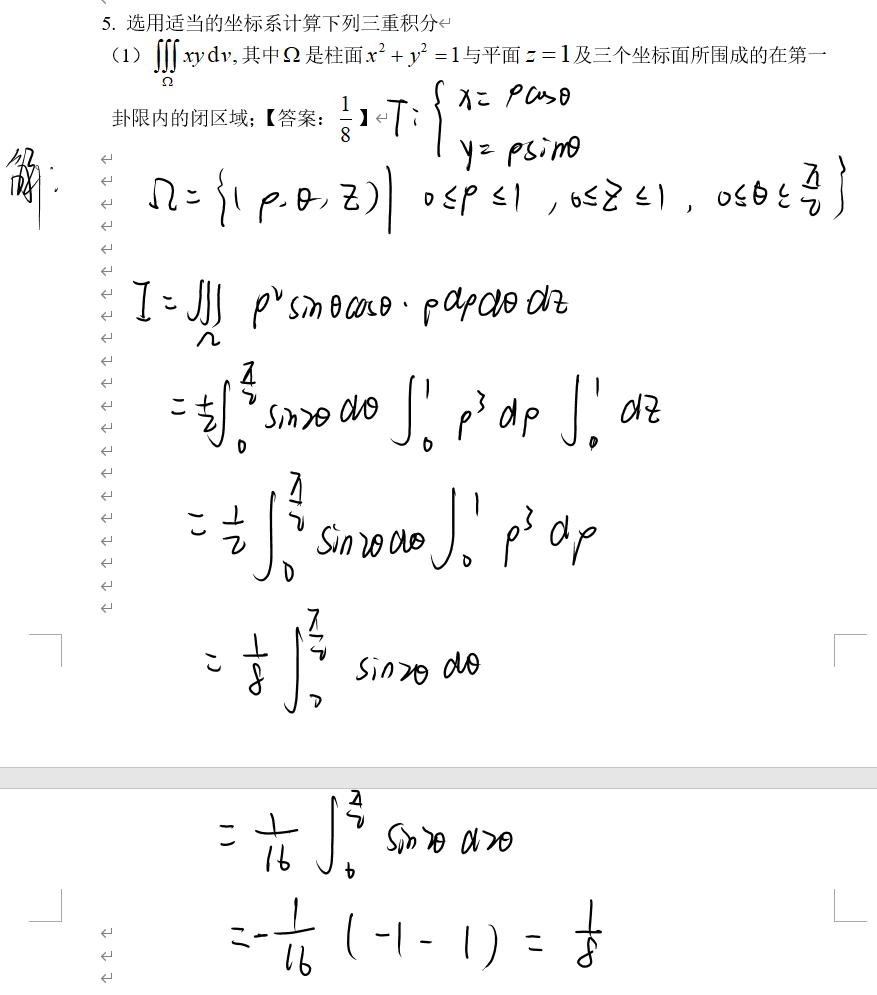 5. 选用适当的坐标系计算下列三重积分
（1）∭_Ω xy dv, 其中 Ω 是柱面 x² + y² = 1 与平面 z = 1 及三个坐标面所围成的在第一
卦限内的闭区域;【答案: 1/8】 T: { x = ρcosθ
y = ρsinθ
解:
Ω = {(ρ, θ, z) | 0≤ρ≤1, 0≤z≤1, 0≤θ≤π/2}
I = ∭_Ω ρ² sinθcosθ · ρdρdθdz
= 1/2 ∫_0^{π/2} sin2θ dθ ∫_0^1 ρ³ dρ ∫_0^1 dz
= 1/2 ∫_0^{π/2} sin2θ dθ ∫_0^1 ρ³ dρ
= 1/8 ∫_0^{π/2} sin2θ dθ
= 1/16 ∫_0^{π/2} sin2θ d2θ
= -1/16 (-1-1) = 1/8